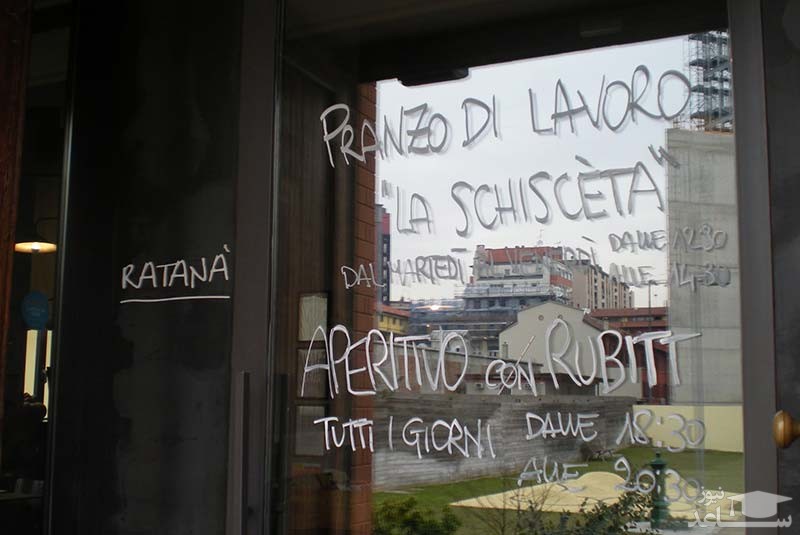 RATANÀ
PRANZO DI LAVORO
"LA SCHISCÈTA"
DAL MARTEDÌ AL VENERDÌ DALLE 12:30
ALLE 14:30
APERITIVO CON RÜBITT
TUTTI I GIORNI DALLE 18:30
ALLE 20:30
نیوز
ساعد